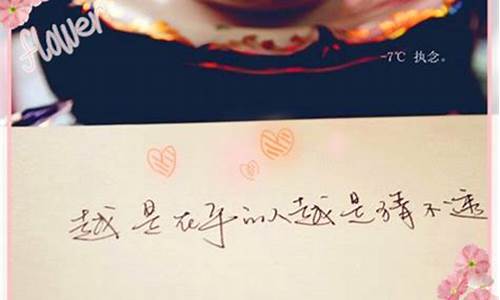 flower
-7℃ 执念。
越是在乎的人越是猜不透